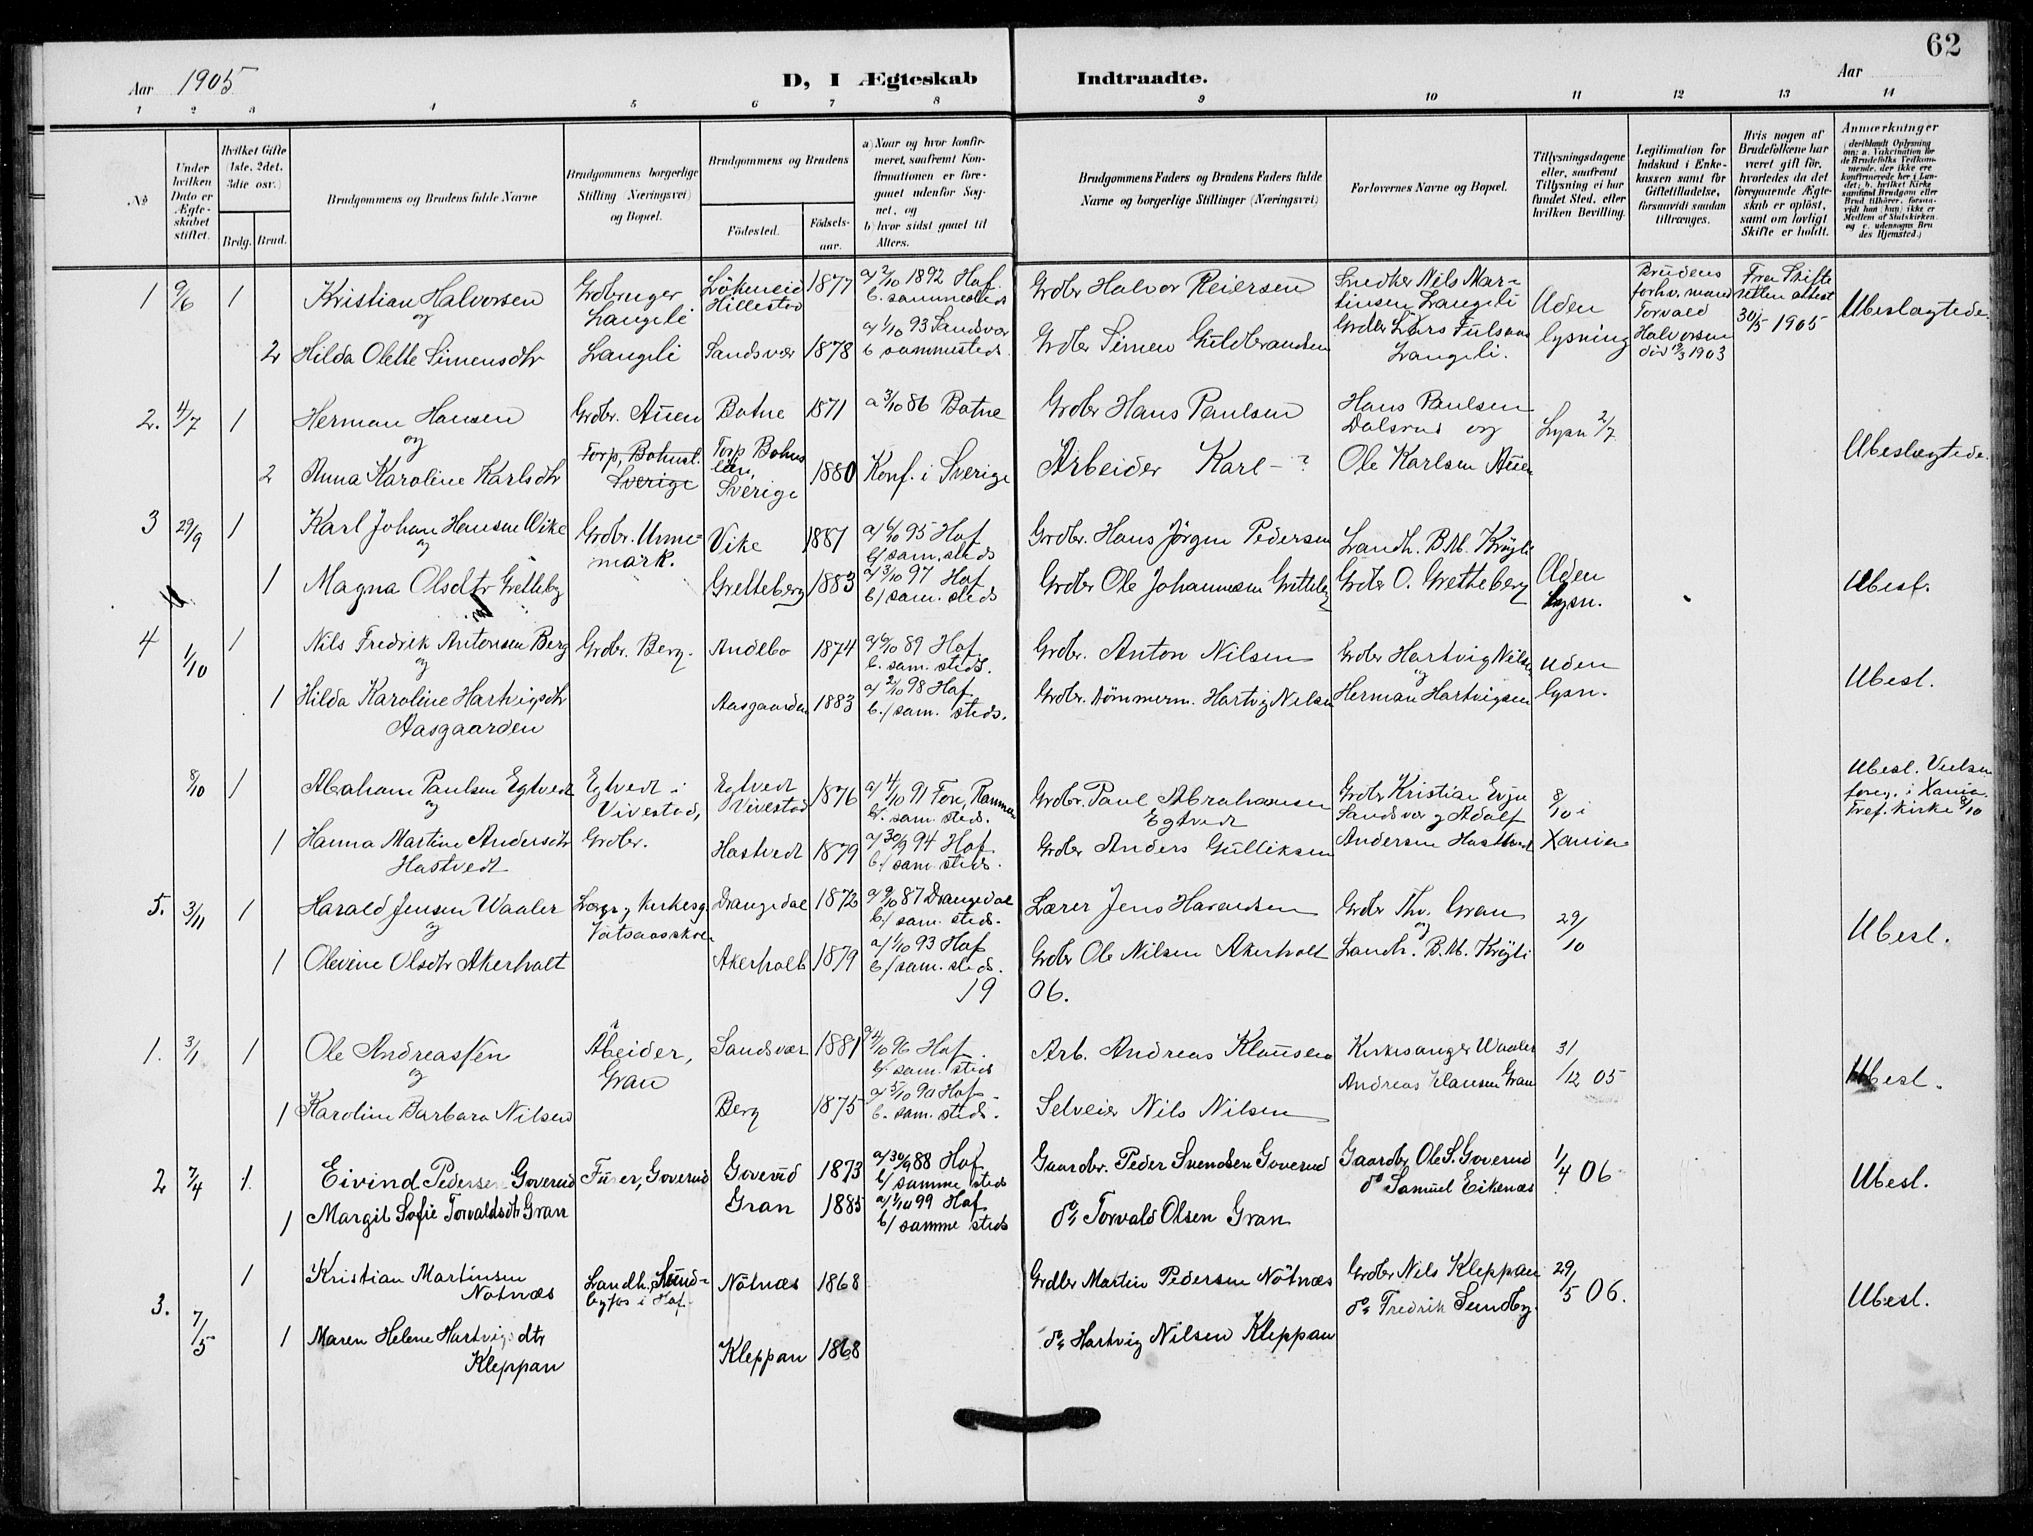 62
Aar 1905
D, I Ægteskab Indtraadte.
Aar
1 2 3 4 5 6 7 8 9 10 11 12 13 14
No
Under hvilken Dato er Ægteskabet stiftet.
Hvilket Gifte (1ste, 2det, 3die osv.)
Brdg. Brud.
Brudgommens og Brudens fulde Navne
Brudgommens borgerlige Stilling (Næringsvei) og Bopæl.
Brudgommens og Brudens
Födested.
Födselsaar.
a) Naar og hvor konfirmeret, saafremt Konfirmationen er foregaaet udenfor Sognet, og
b) hvor sidst gaaet til Alters.
Brudgommens Faders og Brudens Faders fulde Navne og borgerlige Stillinger (Næringsvei)
Forlovernes Navne og Bopæl.
Tillysningsdagene eller, saafremt Tillysning ei har fundet Sted, efter hvilken Bevilling.
Legitimation for Indskud i Enkekassen samt for Giftetilladelse, forsaavidt saadan tiltrænges.
Hvis nogen af Brudefolkene har været gift för, hvorledes da det foregaaende Ægteskab er oplöst, samt om lovligt Skifte er holdt.
Anmærkninger
(deriblandt Oplysning om: a. Vakcination for de Brudefolks Vedkommende, der ikke ere konfirmerede her i Landet; b. hvilket Kirkesamfund Brudgom eller Brud tilhörer, forsaavidt han (hun) ikke er Medlem af Statskirken og c. udensogns Brudes Hjemsted.)
1 9/6 1 Kristian Halvorsen Grdbruger Langeli Hillestad 1877 a/ 2/10 1892 Hof b. sammesteds Grdbr Halvor Reiersen Snedker Nils Martinsen Langeli Uden lysning Brudens forhv. mand Torvald Halvorsen död 12/3 1903 Fra Skifteretten attest 30/5 1905 Ubeslægtede
og
2 Hilda Olette Simensdtr Langeli Sandsvær 1878 a/ 1/10 93 Sandsvær b sammesteds Grdbr Simen Guldbrandsen Langeli.
2. 4/7 1 Herman Hansen Grdbr. Auen Botne 1871 a 3/10 86 Botne Grdbr Hans Paulsen Hans Paulsen Dalsrud og Lysn 2/7 Ubeslægtede
og
2 Anna Karoline Karlsdtr Torp, Bohusl. Sverige Torp Bohuslän, Sverige 1880 Konf. i Sverige Arbeider Karl - ? Ole Karlsen Auen
3 29/9 1 Karl Johan Hansen Vike Grdbr. Unnemark. Vike 1881 a/ 6/10 95 Hof b/ sam. steds Grdbr. Hans Jörgen Pedersen Landh. B.M. Kröyli Uden Lysn. Ubesl.
og
1 Magna Olsdtr Gretteberg Gretteberg 1883 a/ 3/10 97 Hof b/ sam. steds Grdbr Ole Johannesen Gretteberg Grdbr O. Gretteberg
4 1/10 1 Nils Fredrik Antonsen Berg Grdbr. Berg. Andebo 1874 a/ 6/10 89 Hof b. sam. steds. Grdbr. Anton Nilsen Grdbr Hartvig Nilsen Uden lysn. Ubesl.
og
1 Hilda Karoline Hartvigsdtr Aasgaarden Aasgaarden 1883 a/ 2/10 98 Hof b./ sam. steds. Grdbr. Tömmerm. Hartvig Nilsen Herman Hartvigsen
8/10 1 Abraham Paulsen Egtvedt Egtvedt i Vivestad, Egtvedt Vivestad 1876 a/ 4/10 91 Fon, Ramnes b. sam. steds. Grdbr. Paul Abrahamsen Egtvedt Grdbr Kristian Evju Sandsvær og Adolf 8/10 i Xania Ubesl. Vielsen foreg. i Xania Tref. Kirke 8/10
og
1 Hanna Martine Andersdtr Hastvedt Grdbr. Hastvedt 1879 a/ 30/9 94 Hof b./ sam. steds. Grdbr Anders Gulliksen Andersen Hastvedt
5. 3/11 1 Harald Jensen Waaler Lærer og Kirkesg. Drangedal 1872 a/ 9/10 87 Drangedal b/ sam. steds. Lærer Jens Haraldsen Grdbr Thv. Gran 29/10 Ubesl.
og
1 Olevine Olsdtr Akerholt Akerholt 1879 a/ 1/10 93 Hof b/ sam. steds. Grdbr Ole Nilsen Akerholt Landh. B.M. Kröyli
1906.
1. 3/1 1 Ole Andreassen Arbeider, Gran Sandsvær 1881 a 4/10 96 Hof. b/ sam. steds Arb. Andreas Klausen Kirkesanger Waaler 31/12 05 Ubesl.
og
1 Karoline Barbara Nilsen Berg 1875 a 5/10 90 Hof b. sam. steds. Selveier Nils Nilsen Andreas Klausen Gran
2 7/4 1. Eivind Pedersen Goverud Goverud Goverud 1873 a/ 30/9 88 Hof b/ samme steds Gaardbr. Peder Svendsen Goverud Gaardbr Ole S. Goverud 1/4 06 Ubesl.
1 Margit Sofie Torvaldsdtr Gran Gran 1885 a/ 1/10 99 Hof b/ samme steds do Torvald Olsen Gran do Samuel Eikenæs
3. 7/5 1 Kristian Martinsen Nötnæs Landh. Sundbyfos i Hof. Nötnæs 1868 Grdbr Martin Pedersen Nötnæs Grdbr Nils Kleppan 29/5 06. Ubesl.
1 Maren Helene Hartvigsdtr Kleppan Kleppan 1868 do Hartvig Nilsen Kleppan do Fredrik Sundby.